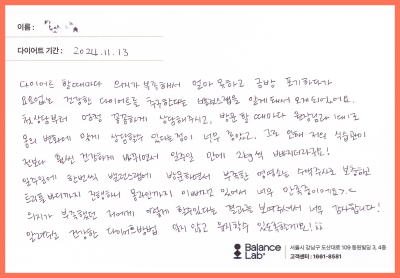 이름 :
다이어트 기간 : 2024.11.13
다이어트 할때마다 의지가 부족해서 얼마 못하고 금방 포기하다가
요요없는 건강한 다이어트를 추구한다는 밸런스랩을 알게 돼서 오게되었어요.
첫상담부터 엄청 꼼꼼하게 상담해주시고, 방문할 때마다 원장님과 1대1로
몸의 변화에 맞게 상담할수 있다는점이 너무 좋았고, 그로 인해 저의 식습관이
전보다 훨씬 건강하게 바뀌면서 일주일 만에 2kg씩 빠지더라구요!
일주일에 한번씩 밸런스랩에 방문하면서 부족한 영양소는 수액주사로 보충하고
관리를 받고있어서 너무 만족중이에요>.<
의지가 부족했던 저에게 이렇게 할수있다는 결과를 보여주셔서 너무 감사합니다!
알려주신 건강한 다이어트방법 잊지 않고 유지할수 있도록할게요!!
Balance Lab
서울시 강남구 도산대로 109 동원빌딩 3, 4층
고객센터 : 1661-8581